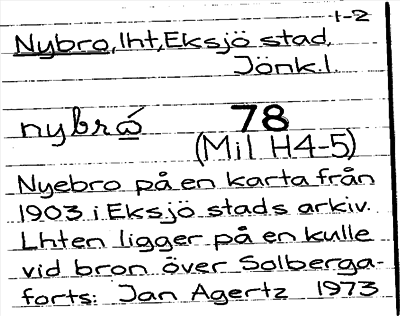 1-2
Nybro, lht, Eksjö stad,
Jönk.l.
nybrǻ 78
(Mil H4-5)
Nyebro på en karta från
1903 i Eksjö stads arkiv.
Lhten ligger på en kulle
vid bron över Solberga-
forts: Jan Agertz 1973